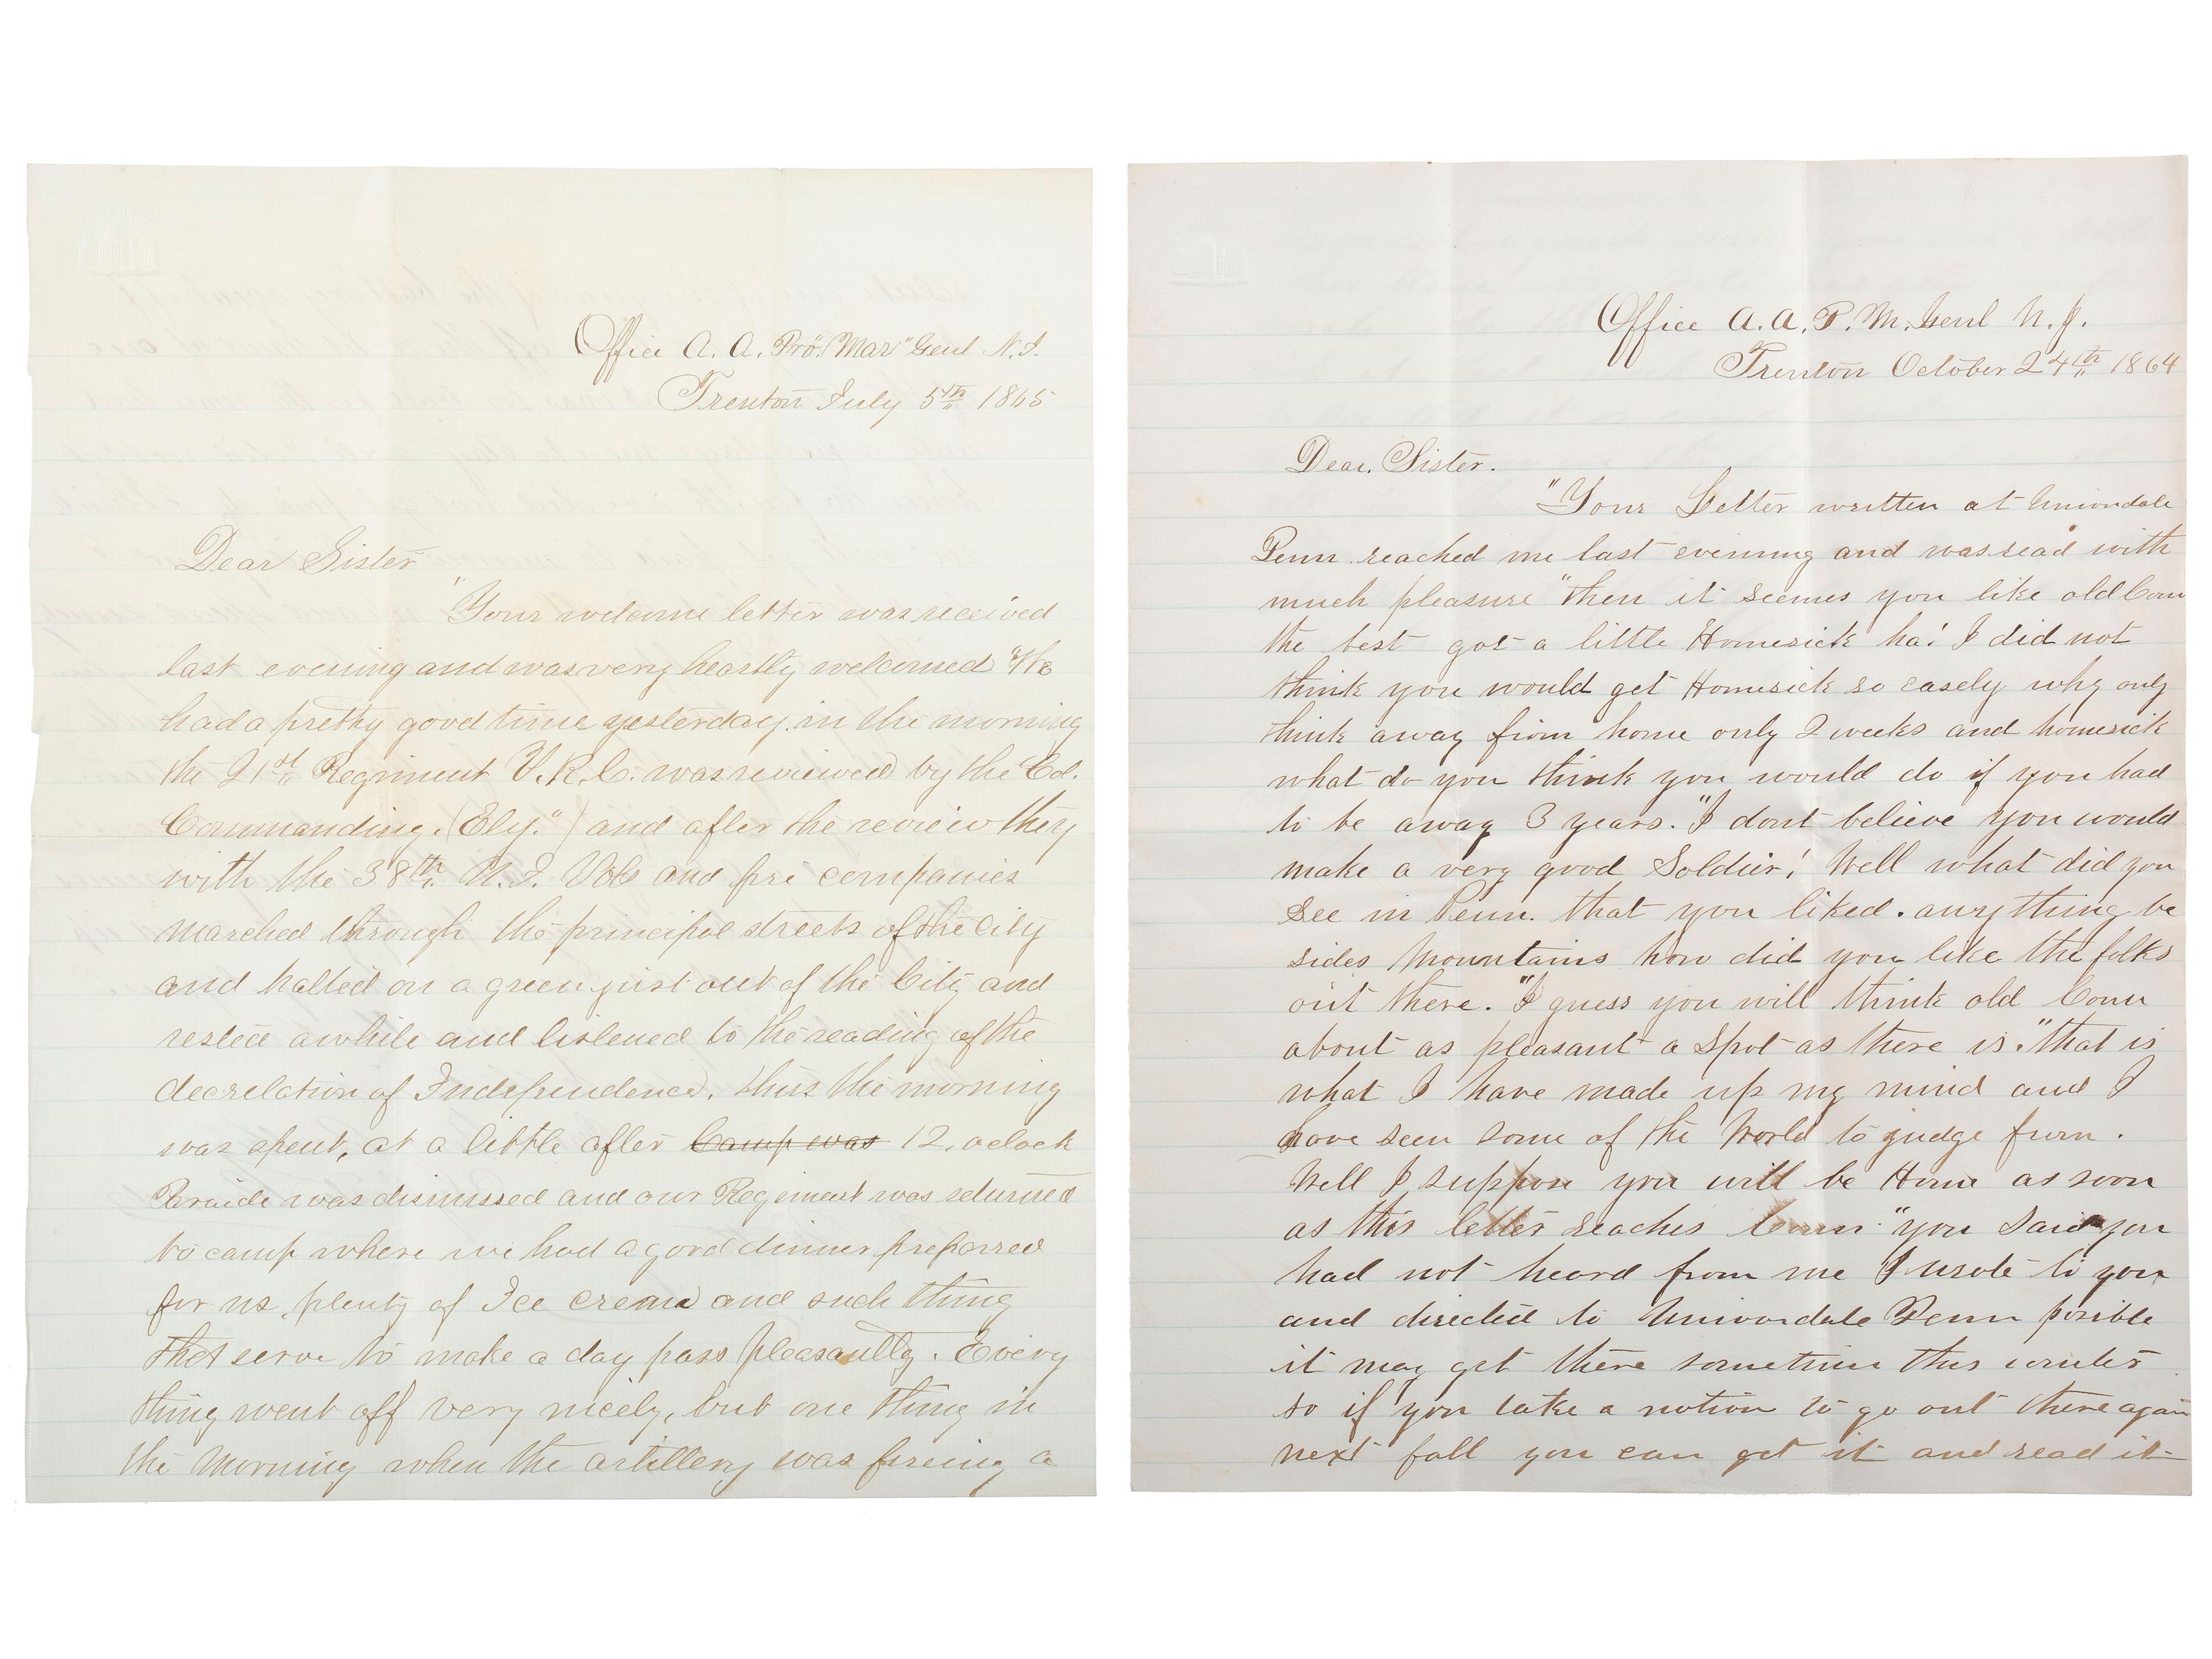 Office A. A. Pro. Mar" Genl N. J.
Trenton July 5th 1865
Dear Sister
"Your welcome letter was received
last evening and was very heartly welcomed "We
had a pretty good time yesterday. in the morning
the 21st Regiment V. R. C. was reviewed by the Col.
Commanding. (Ely.") and after the review they
with the 38th N. J. Vols and fire companies
marched through the principle streets of the City
and halted on a green just out of the City and
rested awhile and listened to the reading of the
decrelation of Independence. thus the morning
was spent, at a little after Camp was 12. oclock
Peraide was dismissed and our Regiment was returned
to camp where we had a good dinner preparred
for us, plenty of Ice crema and such thing
that serve to make a day pass pleasantly. Every
thing went off very nicely, but one thing in
the Morning when the artillery was fireing a
Office A. A. P. M. Genl N. J.
Trenton October 24th 1864
Dear Sister.
"Your Letter written at Uniondale
Penn. reached me last evening and was read with
much pleasure "then it seemes you like old Conn
the best got a little Homesick ha! I did not
think you would get Homesick so easely why only
think away from home only 2 weeks and homesick
what do you think you would do if you had
to be away 3 years. "I dont believe you would
make a very good Soldier! Well what did you
see in Penn. that you liked. anything be
sides Mountains how did you like the folks
out there. "I guess you will think old Conn
about as pleasant a Spot as there is. "that is
what I have made up my mind and I
have seen some of the World to gudge from.
Well I suppose you will be Home as soon
as this letter reaches Conn "you said you
had not heard from me I wrote to you
and directed to Uniondale Penn posible
it may get there sometime this winter
so if you take a notion to go out there again
next fall you can get it and read it